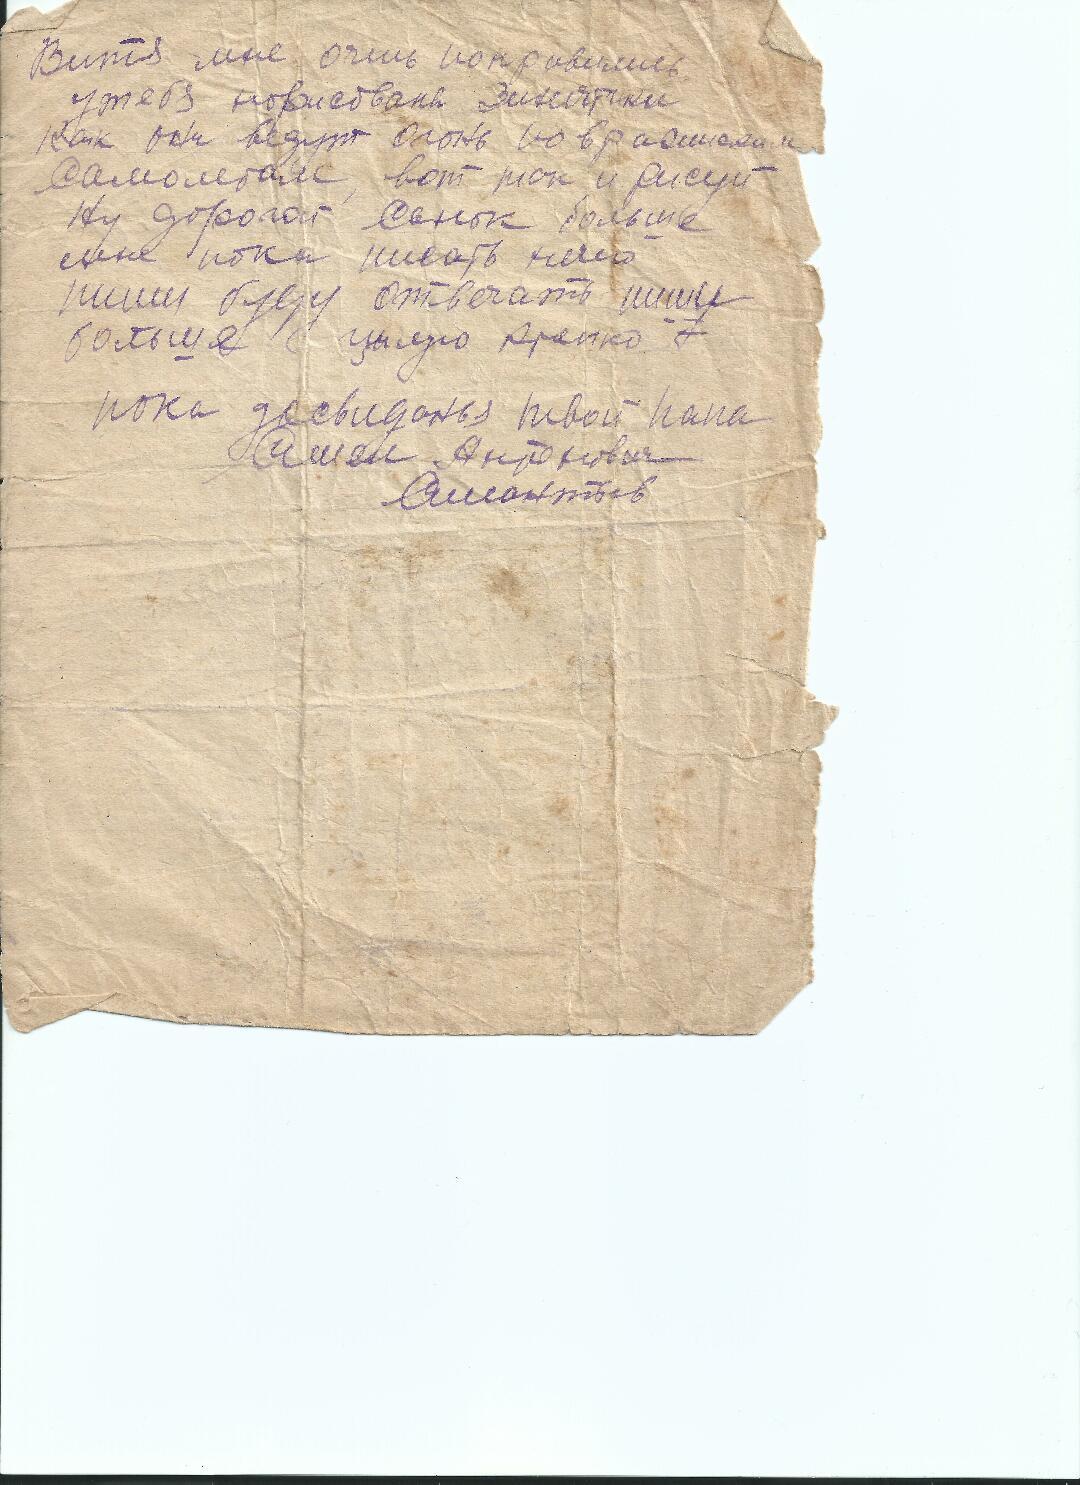 Витя мне очень понравились
утебя норисована Зинитки
Как они ведут огонь по врашиским
Самолетам, вот так и рисуй
Ну дорогой Сынок больше
мне пока писать нечго
пиши буду отвечать пиши
больше цылую крепко
пока досвиданья твой папа
Антонович